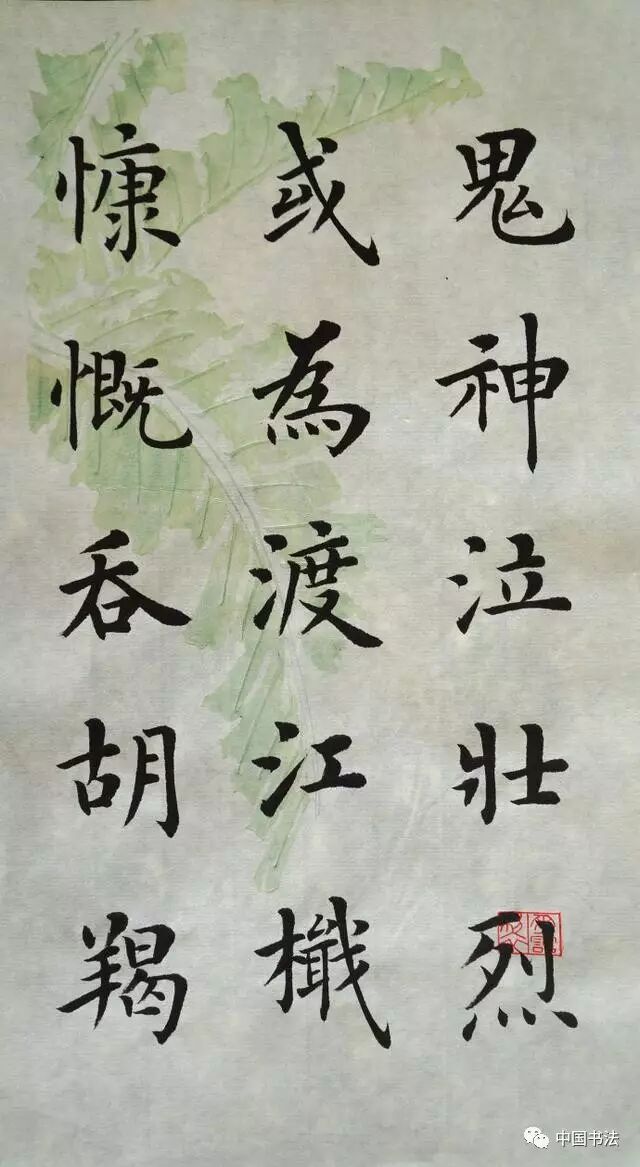 鬼神泣壯烈
或為渡江檝
慷慨吞胡羯
中国书法